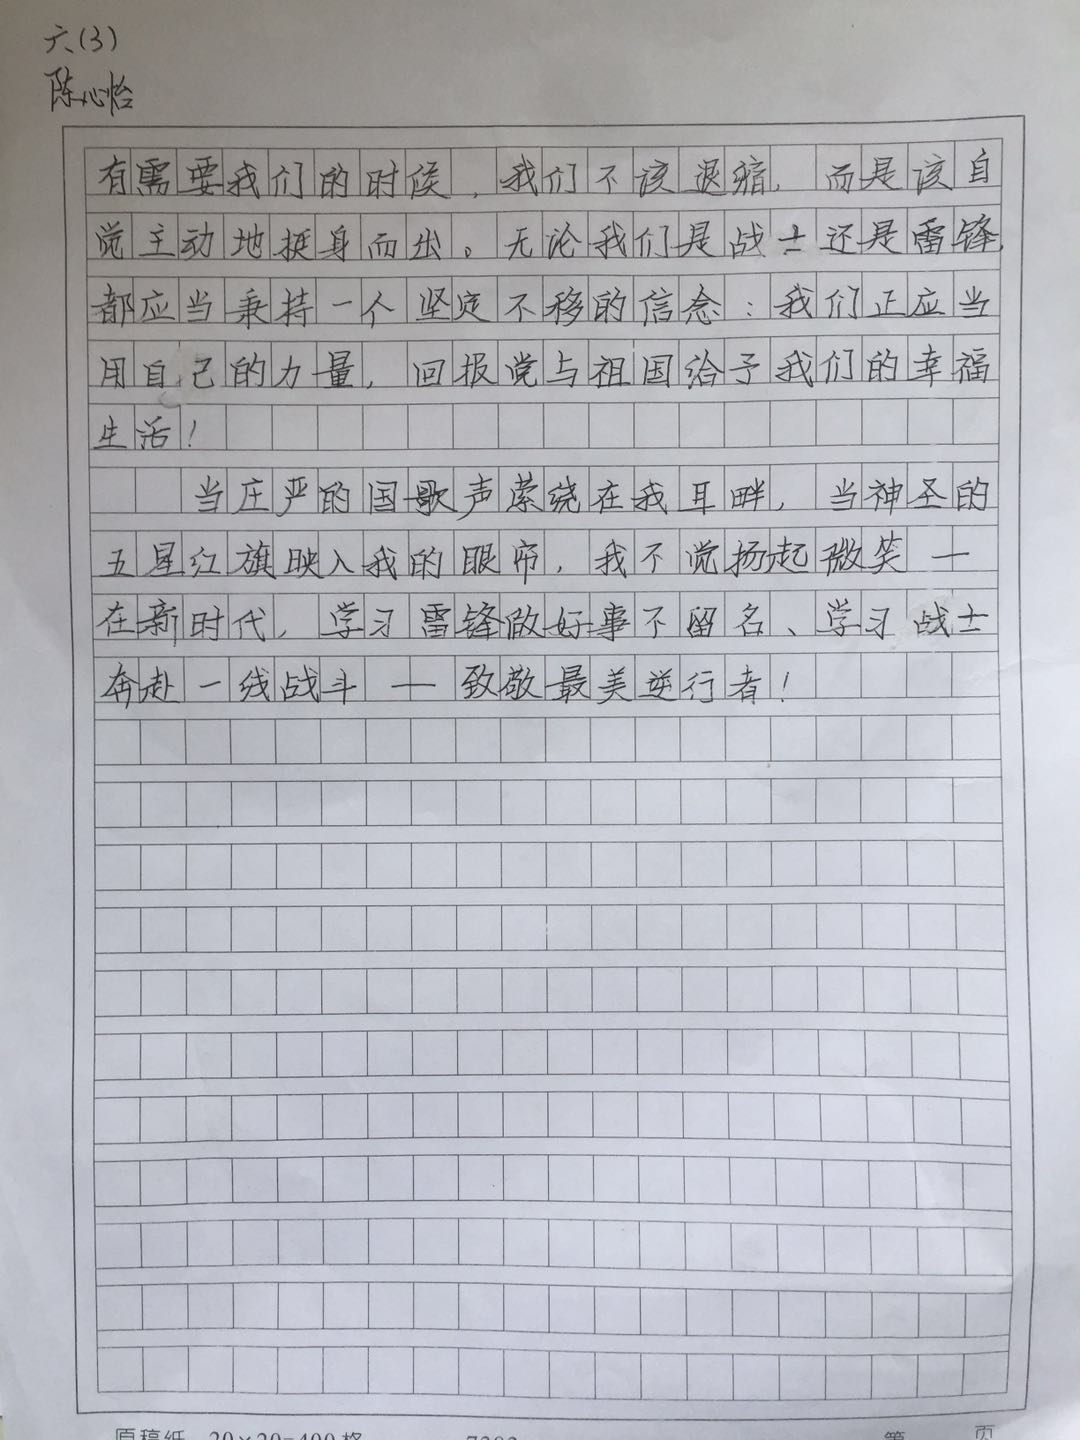 六(3)
陈心怡
有需要我们的时候，我们不该退缩，而是该自
觉主动地挺身而出。无论我们是战士还是雷锋，
都应当秉持一个坚定不移的信念：我们正应当
用自己的力量，回报党与祖国给予我们的幸福
生活！
当庄严的国歌声萦绕在我耳畔，当神圣的
五星红旗映入我的眼帘，我不觉扬起微笑—
在新时代，学习雷锋做好事不留名、学习战士
奔赴一线战斗—致敬最美逆行者！
原稿纸 20×20=400格 第 页